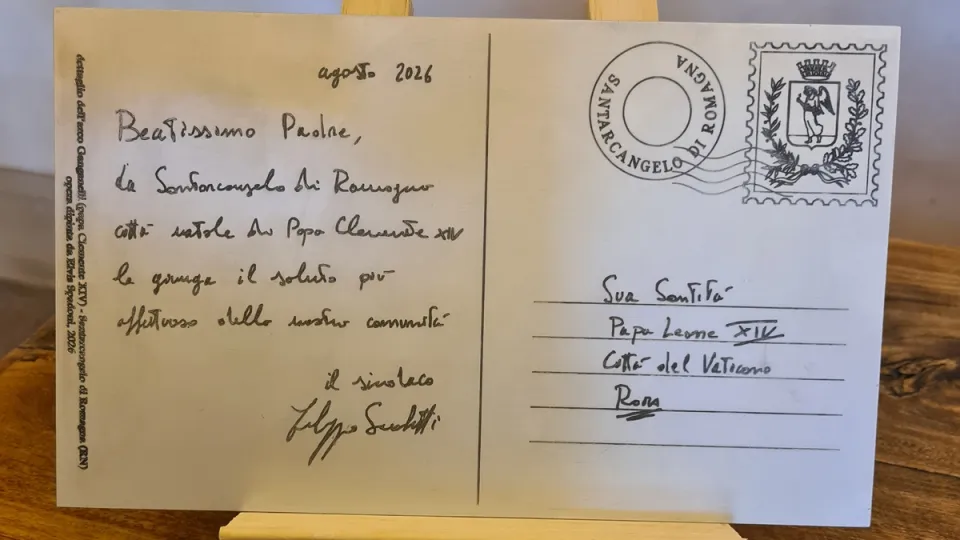 dettaglio dell'arco Ganganelli (papa Clemente XIV) - Santarcangelo di Romagna (RN)
opera dipinta da Elvis Spadoni, 2026
agosto 2026
Beatissimo Padre,
da Santarcangelo di Romagna
città natale di Papa Clemente XIV
le giunga il saluto più
affettuoso della nostra comunità
il sindaco
Filippo Sacchetti
SANTARCANGELO DI ROMAGNA
Sua Santità
Papa Leone XIV
Città del Vaticano
Roma